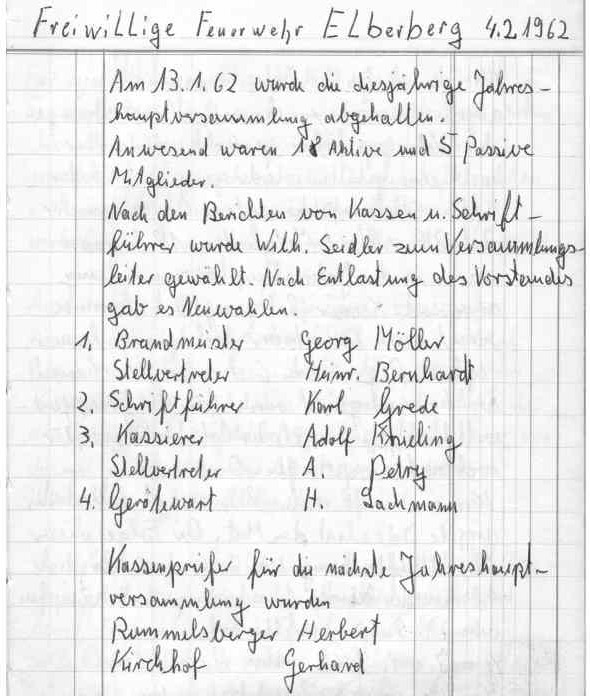 Freiwillige Feuerwehr Elberberg 4.2.1962
Am 13.1.62 wurde die diesjährige Jahres-
hauptversammlung abgehalten.
Anwesend waren 18 Aktive und 5 Passive
Mitglieder.
Nach den Berichten von Kassen u. Schrift-
führer wurde Wilh. Seidler zum Versammlungs-
leiter gewählt. Nach Entlastung des Vorstandes
gab es Neuwahlen.
1. Brandmeister Georg Möller
Stellvertreter Heinr. Bernhardt
2. Schriftführer Karl Grede
3. Kassierer Adolf Knieling
Stellvertreter A. Petry
4. Gerätewart H. Lachmann
Kassenprüfer für die nächste Jahreshaupt-
versammlung wurden
Rummelsberger Herbert
Kirchhof Gerhard